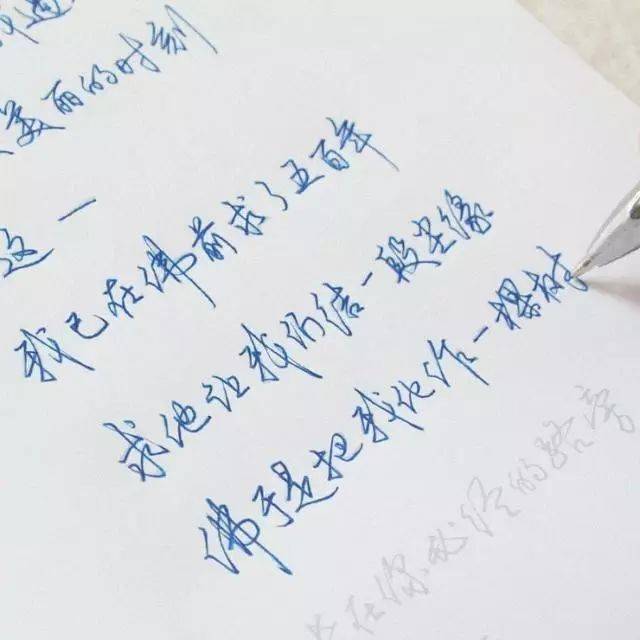 美丽的时刻
这一
我已在佛前求了五百年
求他让我们结一段尘缘
佛于是把我化作一棵树
在你必经的路旁